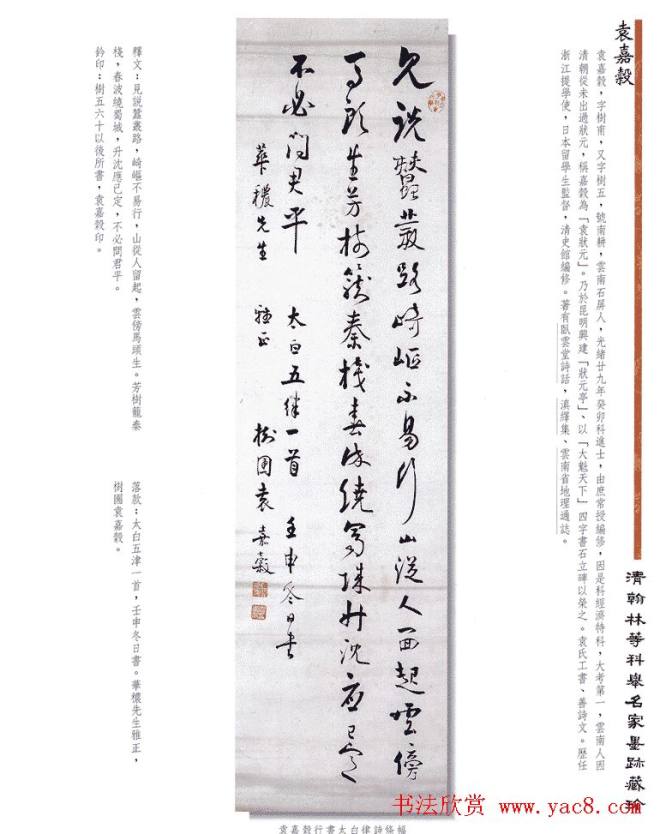 袁嘉穀
袁嘉穀，字樹南，又字樹五，號南耕，雲南石屏人，光緒廿九年癸卯科進士，由庶常授編修，因是科經濟特科，大考第一，雲南人因
清朝從未出過狀元，稱嘉穀為「袁狀元」。乃於昆明興建「狀元亭」、以「大魁天下」四字書石立碑以榮之。袁氏工書、善詩文。歷任
浙江提學使，日本留學生監督，清史館編修。著有臥雲堂詩話，滇繹集、雲南省地理通誌。
清翰林等科舉名家墨跡藏珍
見說蠶叢路崎嶇不易行山從人面起雲傍
馬頭生芳樹籠秦棧春流繞蜀城升沈應已定
不必問君平 太白五律一首 壬申冬日書
華穠先生 雅正 樹圃袁嘉穀
釋文：見說蠶叢路，崎嶇不易行，山從人留起，雲傍馬頭生。芳樹籠秦
棧，春波繞蜀城，升沈應已定，不必問君平。
鈐印：樹五六十以後所書，袁嘉穀印。
落款：太白五津一首，壬申冬日書。華檂先生雅正，
樹圃袁嘉穀。
袁嘉穀行書太白律詩條幅
书法欣赏 www.yac8.com